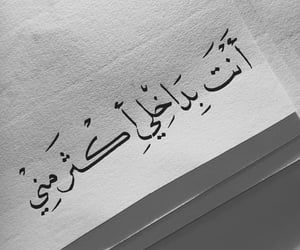 أَنْتَ بِدَاخِلِي أَكْثَر مِنِّيْ